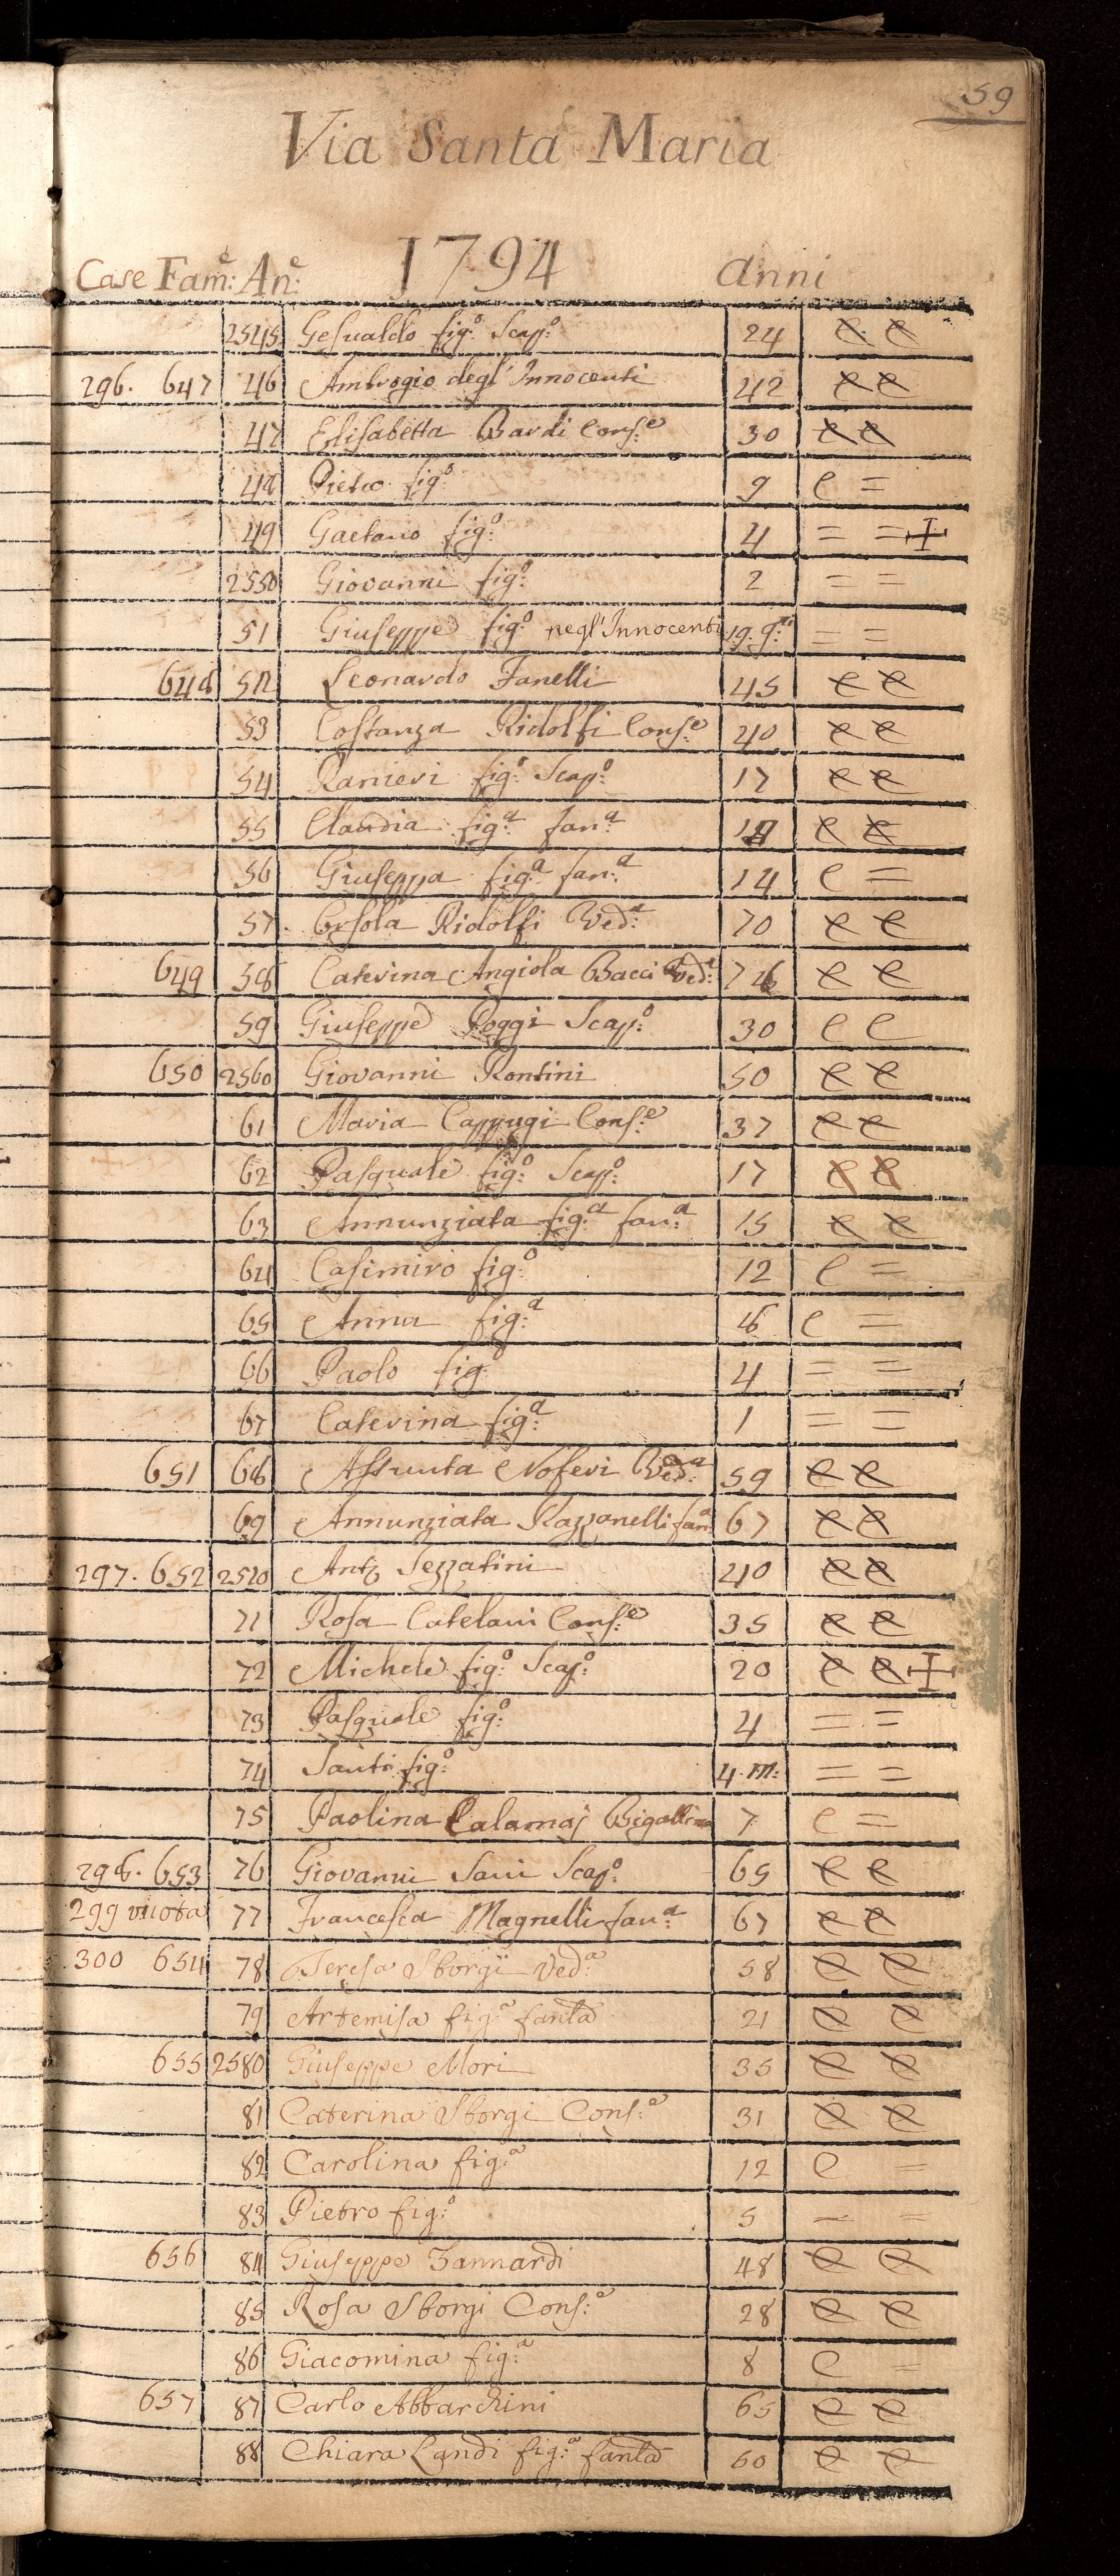 59
Via Santa Maria
1794
Case Fam:e An:e anni
2545 Gesualdo fig:o Scap:o 24 e e
296. 647 46 Ambrogio degl'Innocenti 42 e e
47 Elisabetta Bardi Cons:e 30 e e
48 Pietro fig:o 9 e =
49 Gaetano fig:o 4 = = +
2550 Giovanni fig:o 2 = =
51 Giuseppe fig:o negl'Innocenti 19. g:ni = =
648 52 Leonardo Fanelli 45 e e
53 Costanza Ridolfi Cons:e 40 e e
54 Ranieri fig:o Scap:o 17 e e
55 Claudia fig:a fan:a e e
56 Giuseppa fig:a fan:a 14 e =
57. Orsola Ridolfi Ved:a 70 e e
649 58 Caterina Angiola Bacci Ved:a 76 e e
59 Giuseppe Poggi Scap:o 30 e e
650 2560 Giovanni Rontini 50 e e
61 Maria Cappugi Cons:e 37 e e
62 Pasquale fig:o Scap:o 17 e e
63 Annunziata fig:a fan:a 15 e e
64 Casimiro fig:o 12 e =
65 Anna fig:a 6 e =
66 Paolo fig:o 4 = =
67 Caterina fig:a 1 = =
651 68 Assunta Noferi Ved:a 59 e e
69 Annunziata Razzanelli fan:a 67 e e
297. 652 2570 Ant:o Sezzatini 40 e e
71 Rosa Catelani Cons:e 35 e e
72 Michele fig:o Scap:o 20 e e +
73 Pasquale fig:o 4 = =
74 Santi fig:o 4. m: = =
75 Paolina Calamaj Bigallina 7 e =
298. 653 76 Giovanni Sani Scap:o 65 e e
299 vuota 77 Francesca Magnelli fan:a 67 e e
300 654 78 Teresa Sborgi Ved:a 58 e e
79 Artemisa fig:a fanla 21 e e
655 2580 Giuseppe Mori 35 e e
81 Caterina Sborgi Cons:e 31 e e
82 Carolina fig:a 12 e =
83 Pietro fig:o 5 = =
656 84 Giuseppe Zannardi 48 e e
85 Rosa Sborgi Cons:e 28 e e
86 Giacomina fig:a 8 e =
657 87 Carlo Abbarchini 65 e e
88 Chiara Landi fig:a fanla 60 e e